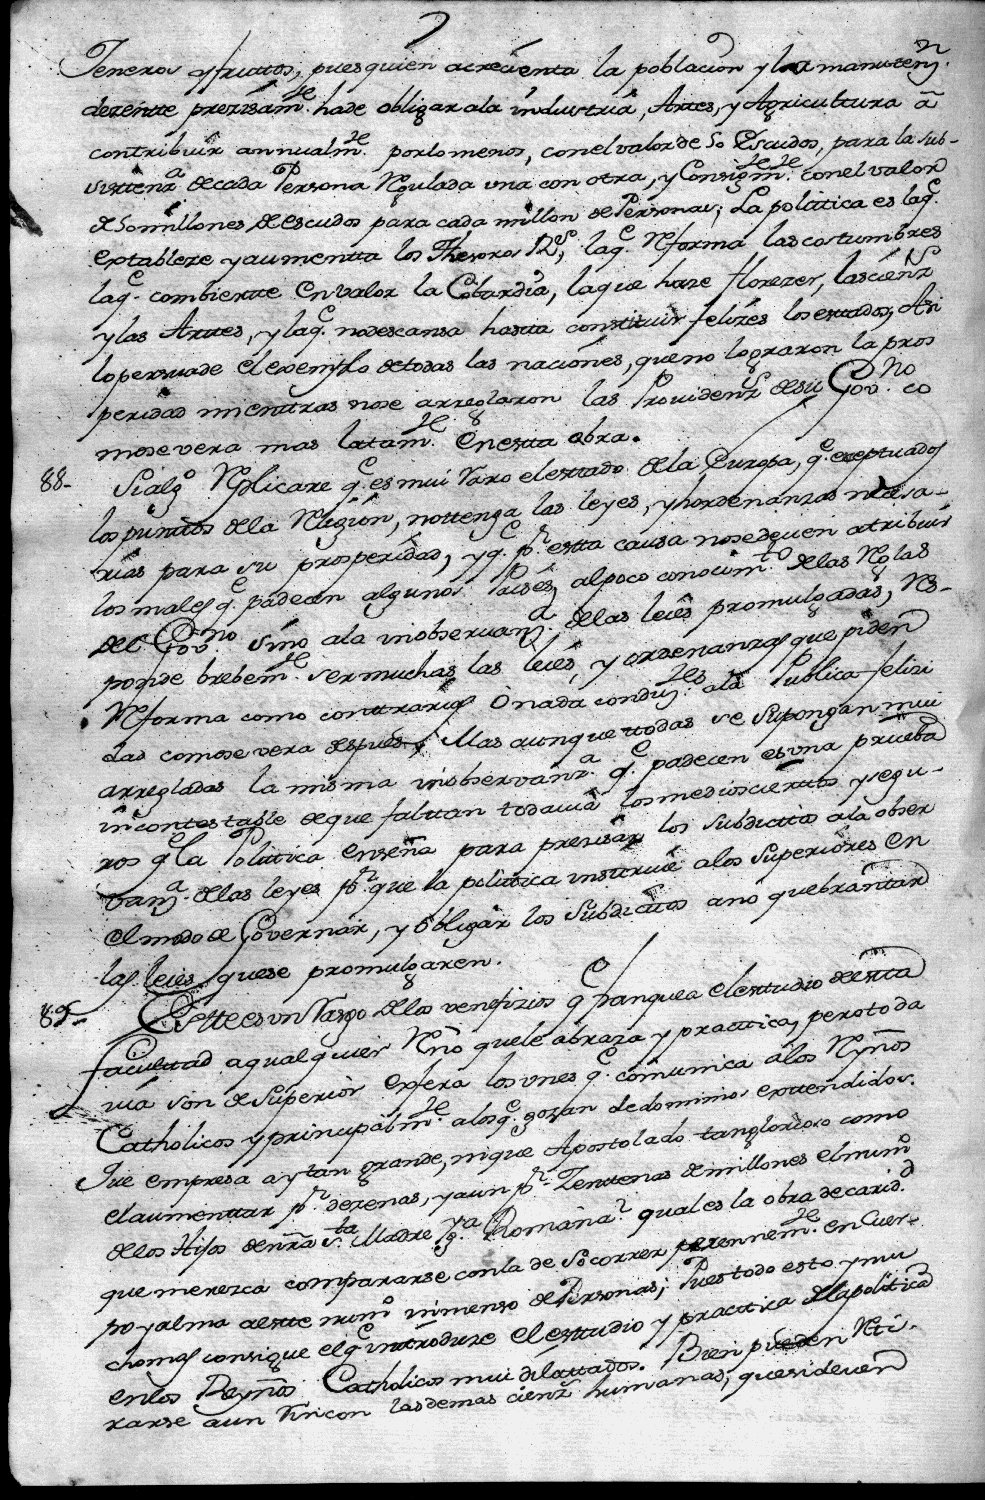 Jeneros y fruttos, pues quien acrecienta la poblacion y la manuten.n
dezentte prezisam.te hade obligar ala industria, Arttes, y Agricultura â
contribuir annualm.te porlomenos, conel valor de 50 Escudos, para la sub-
sistenz.a de cada Persona Rgulada una con otra, y Consig.te m.te conel valor
de 50 millones de escudos para cada millon de Personas; La polittica es laq.e
estableze y aumentta los Thesoros R.s, laq.e Reforma las costumbres
laq.e combiertte en valor la Cobardia, la que haze florezer, las cienz.s
y las Arttes, y laq.e nodescansa hasta constituir felizes los estados, Asi
lo persuade el exemplo de todas las naciones, que no lograron la pros
peridad mienttras nose arreglaron las Providenz.s desu Gov.no co
mose vera mas latam.te en estta obra.
88- Sialg.o Rplicare q.e es mui Raro elestado de la Europa, q.e exeptuados
los punttos dela Religion, nottenga las leyes, y hordenanzas nezesa-
rias para su prosperidad, y q.e p.r estta causa nosedeven atribuir
los males q.e padecen algunos Paises, alpoco conocim.to delas Reglas
del Gov.no sino ala inobservanz.a delas leies promulgadas, Res-
ponde brebem.te ser muchas las leies, y ordenanzas que piden
Reforma como conttrarias ô nada conduz.tes ala Publica felizi
dad comose vera despues, Mas aunque ttodas se supongan mui
arregladas la misma inobservanz.a q.e padecen es una prueba
incontestable de que falttan todavia los medios ciertos y segu-
ros q.e la Polittica enseña para prezisar los subdittos ala obser
vanz.a delas leyes p.r que la polittica instruie alos superiores en
el modo de Governar, y obligar los subdittos ano quebrantar
las leies quese promulgaren.
89- Estte es un Rasgo delos venefizios q.e franquea el estudio de estta
facultad a qualquier Rno que le abraza y practtica, pero toda
via son de superior esfera los vnes q.e comunica alos Ryños
Catholicos y principalm.te alos q.e gozan de dominios exttendidos.
Que empresa ay tan grande, ni que Apostolado tanglorioso como
el aumenttar p.r dezenas, y aun p.r Zenttenas de millones el num.o
delos Hijos denrã s.ta Madre Yg.a Romana? qual es la obra de carid.d
que merezca compararse con la de Socorrer perennem.te en Cuer-
po y alma aestte num.o inmenso de Personas; Pues todo esto y mu
cho mas consigue el q.e introduze el esttudio y practtica dela polittica
enlos Reynos Catholicos mui dilattados. Bien pueden Reti-
rarse aun Rincon las demas cienz.s humanas, que si deven